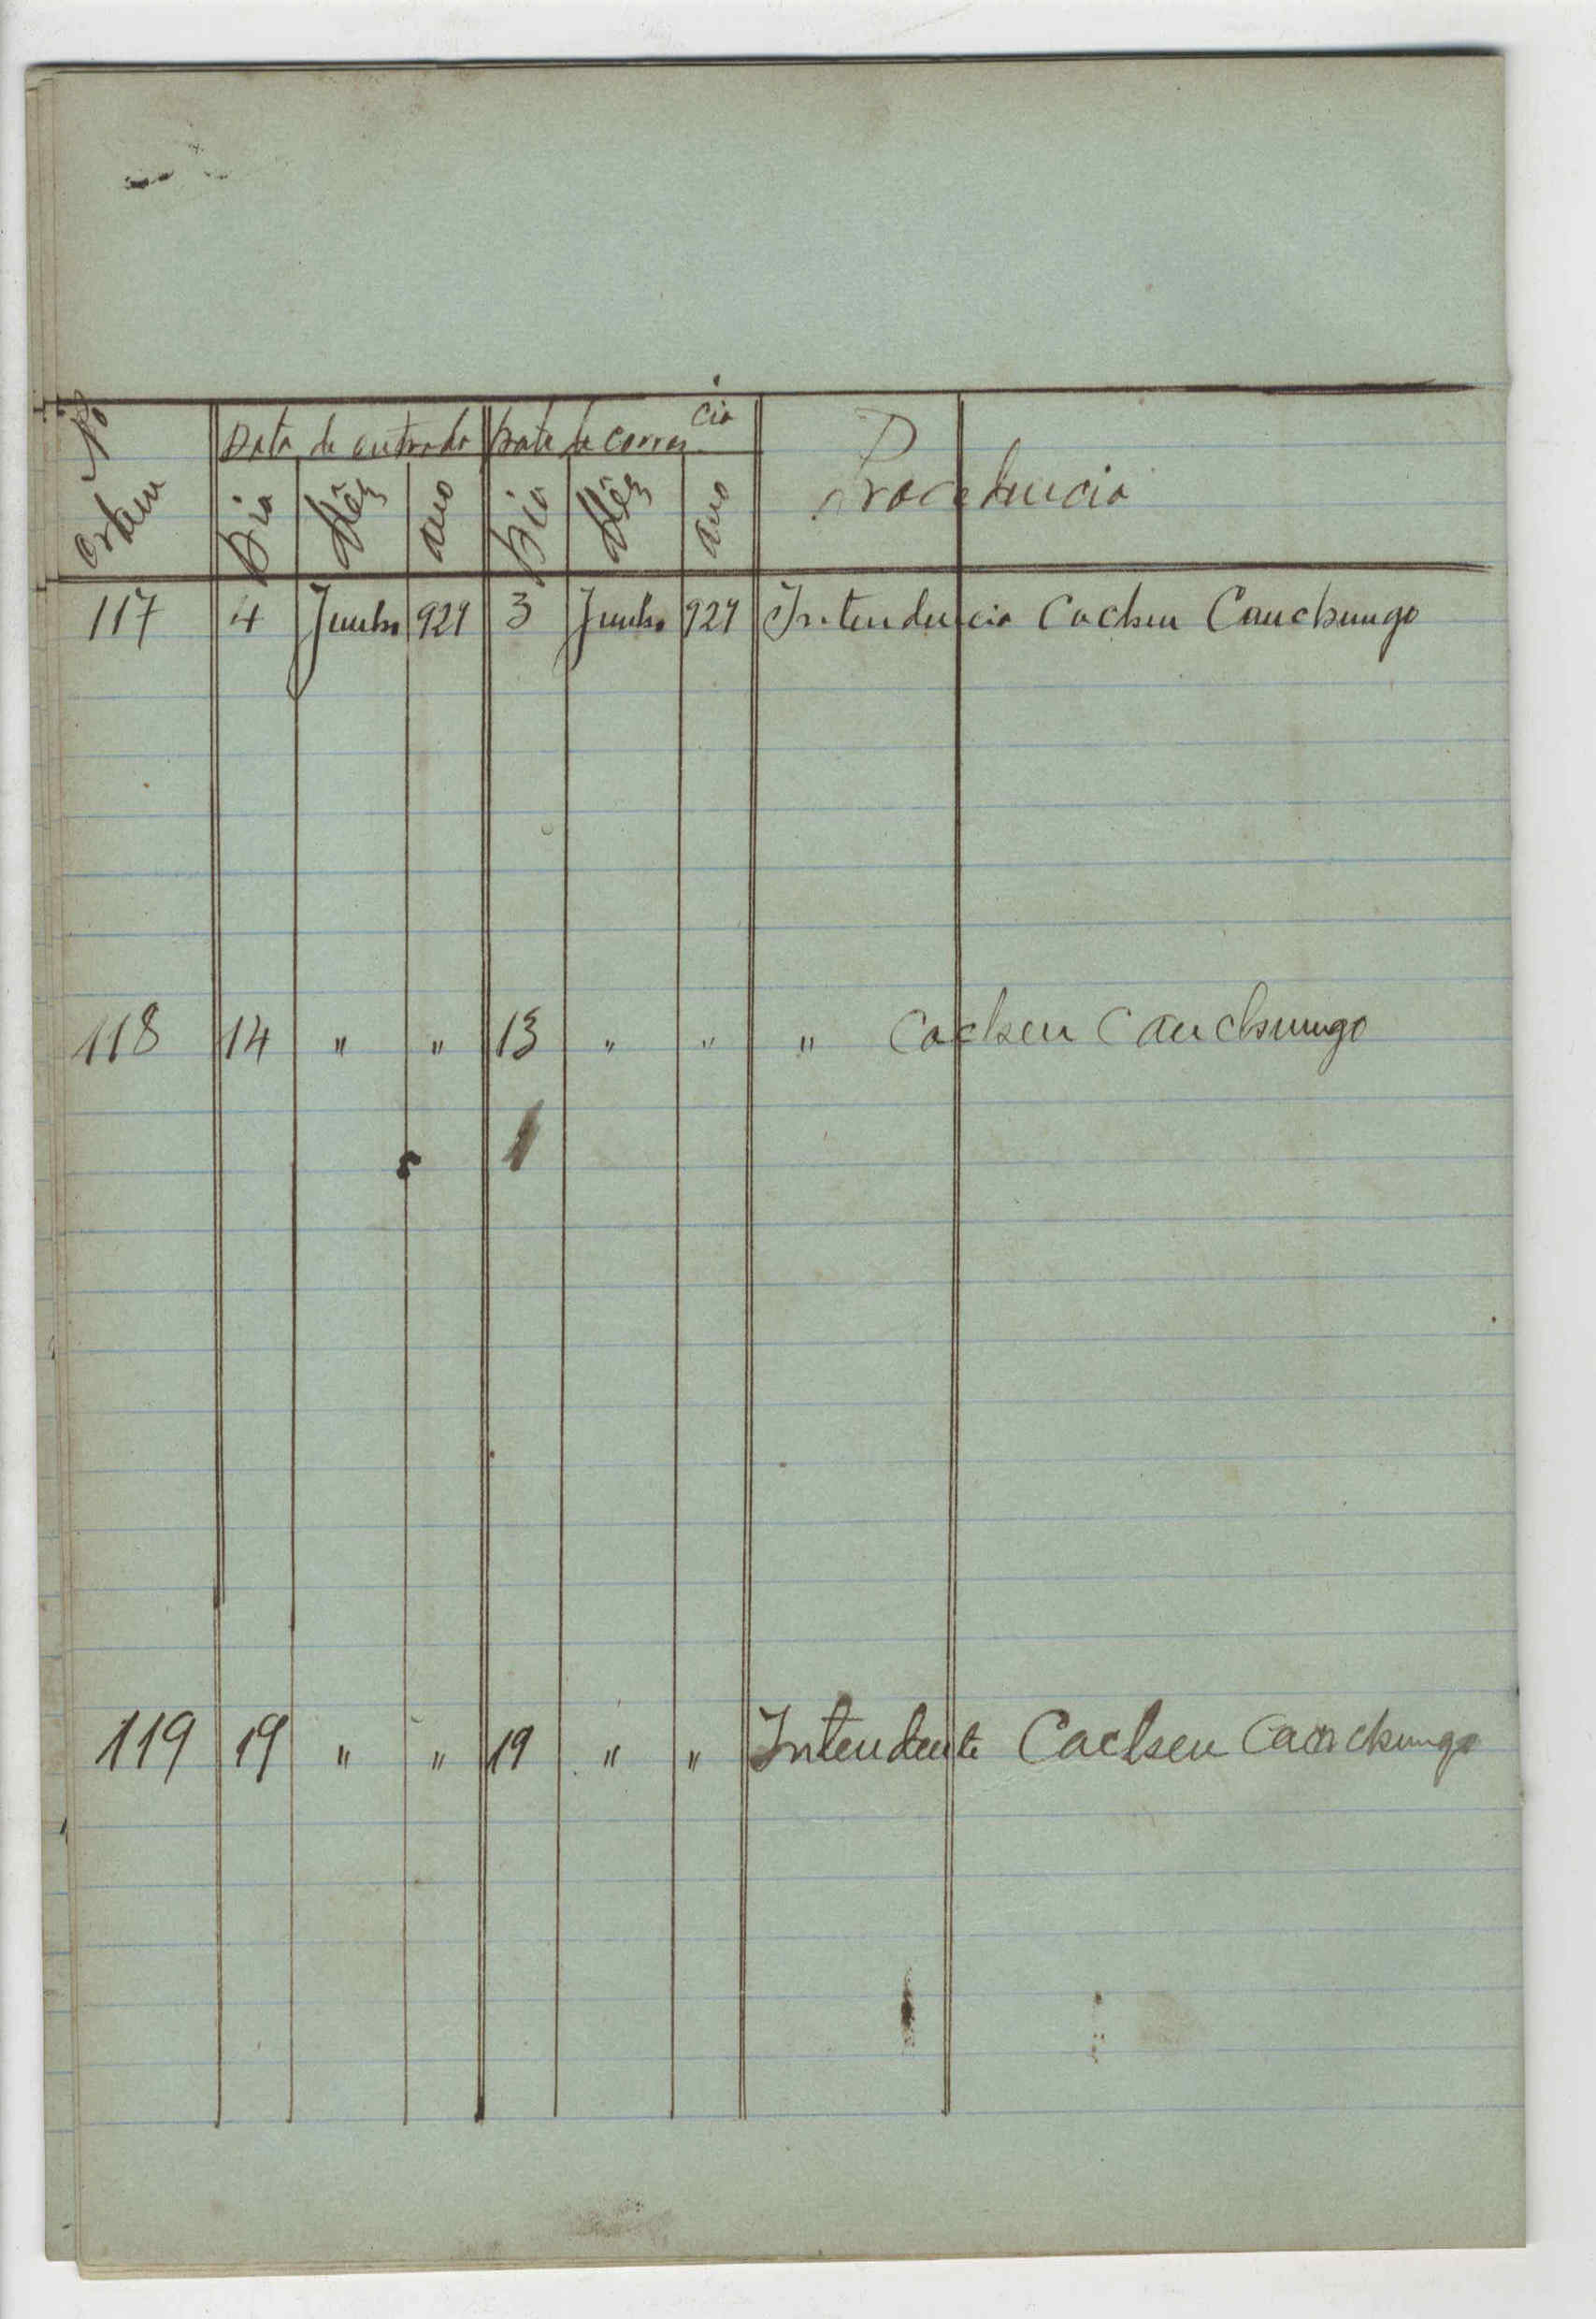 Nº Ordem | Data de entrada | Data de corres.cia | Procedencia
Dia | Mêz | ano | Dia | Mêz | ano
117 | 4 | Junho | 929 | 3 | Junho | 929 | Intendencia Cacheu Canchungo
118 | 14 | " | " | 13 | " | " | " Cacheu Canchungo
119 | 19 | " | " | 19 | " | " | Intendente Cacheu Canchungo